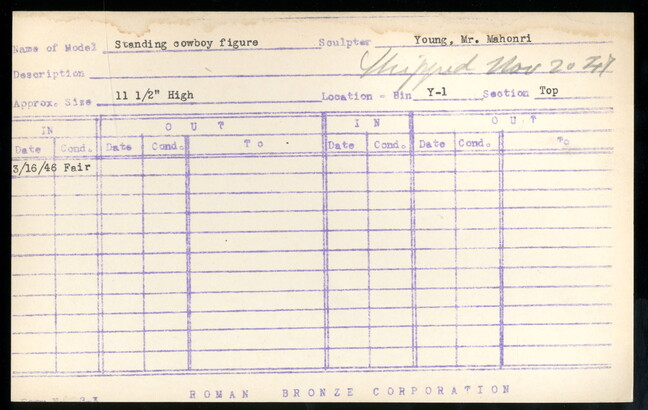 Name of Model Standing cowboy figure Sculptor Young, Mr. Mahonri
Description Shipped Nov 20
Approx. Size 11 1/2" High Location - Bin Y-1 Section Top
IN OUT IN OUT
Date Cond. Date Cond. To Date Cond. Date Cond. To
3/16/46 Fair
ROMAN BRONZE CORPORATION